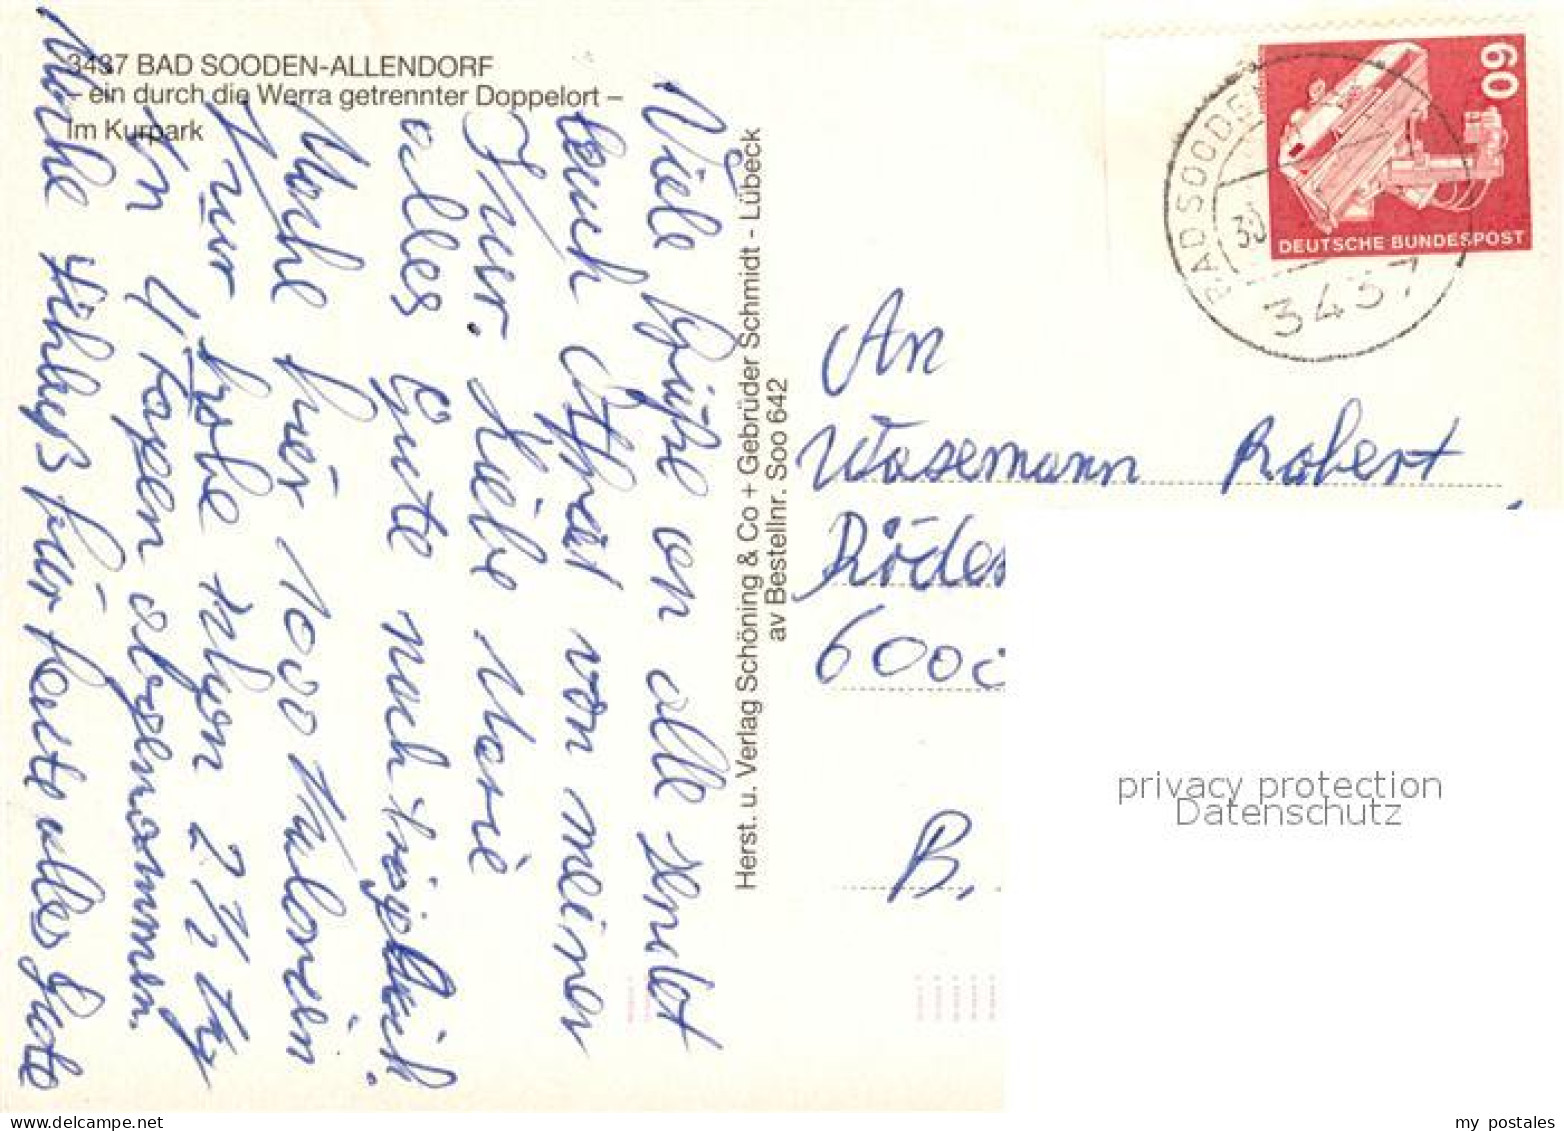 3437 BAD SOODEN-ALLENDORF
– ein durch die Werra getrennter Doppelort –
Im Kurpark
Viele Grüße an alle sendet
Euch Othmar von meiner
Kur. Liebe Marie
alles Gute nachträglich.
Mache hier 1000 Kalorien
Kur habe schon 2 1/2 kg
in 4 Tagen abgenommen.
Mache Schluß für heute alles Gute
Herst. u. Verlag Schöning & Co + Gebrüder Schmidt - Lübeck
av Bestellnr. Soo 642
60
DEUTSCHE BUNDESPOST
BAD SOODEN
30
3437
An
Wasemann Robert
Röde
600
B.
privacy protection
Datenschutz
my postales